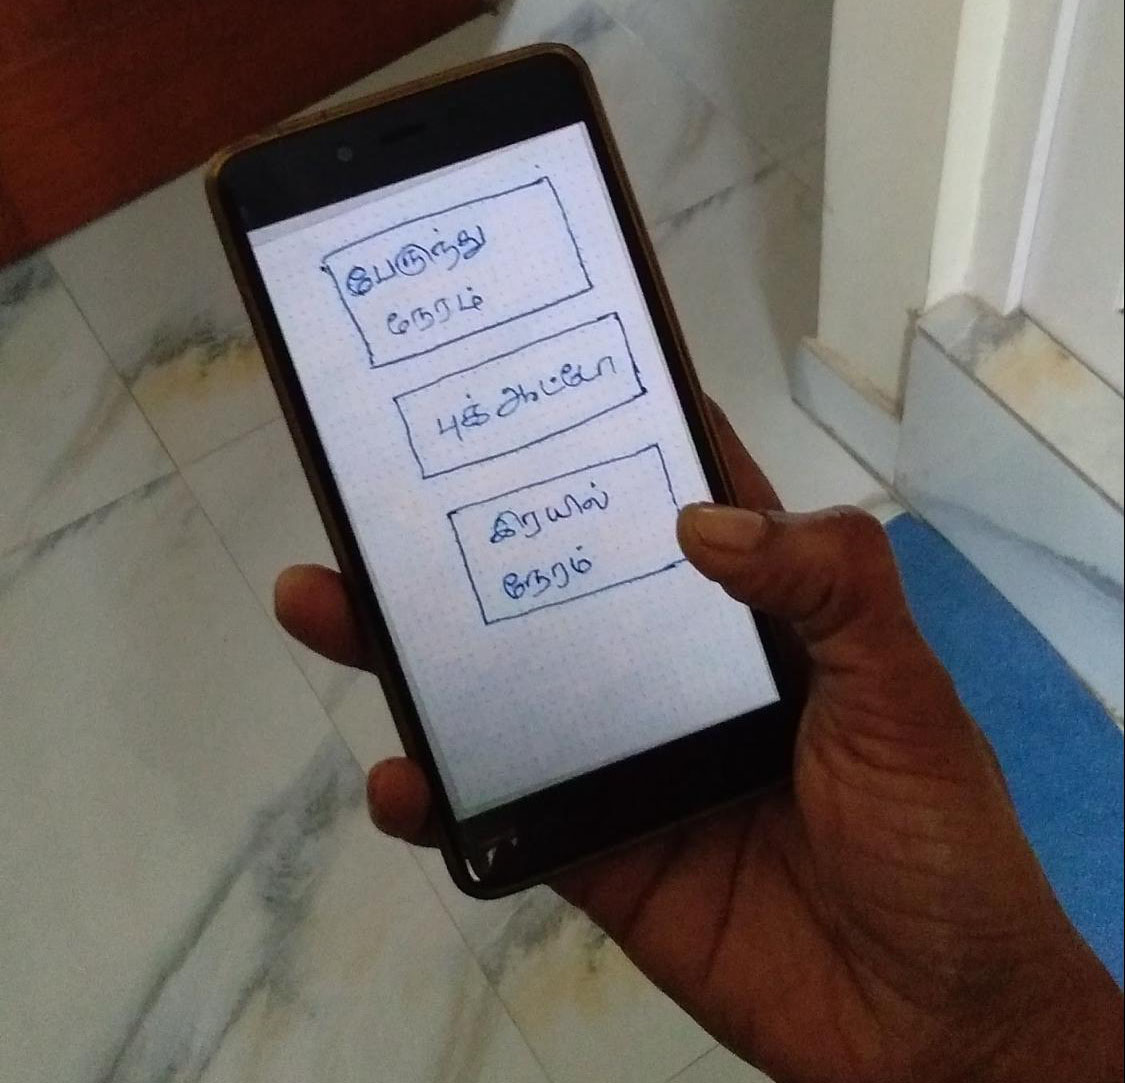 பேருந்து
நேரம்
புக் ஆட்டோ
இரயில்
நேரம்